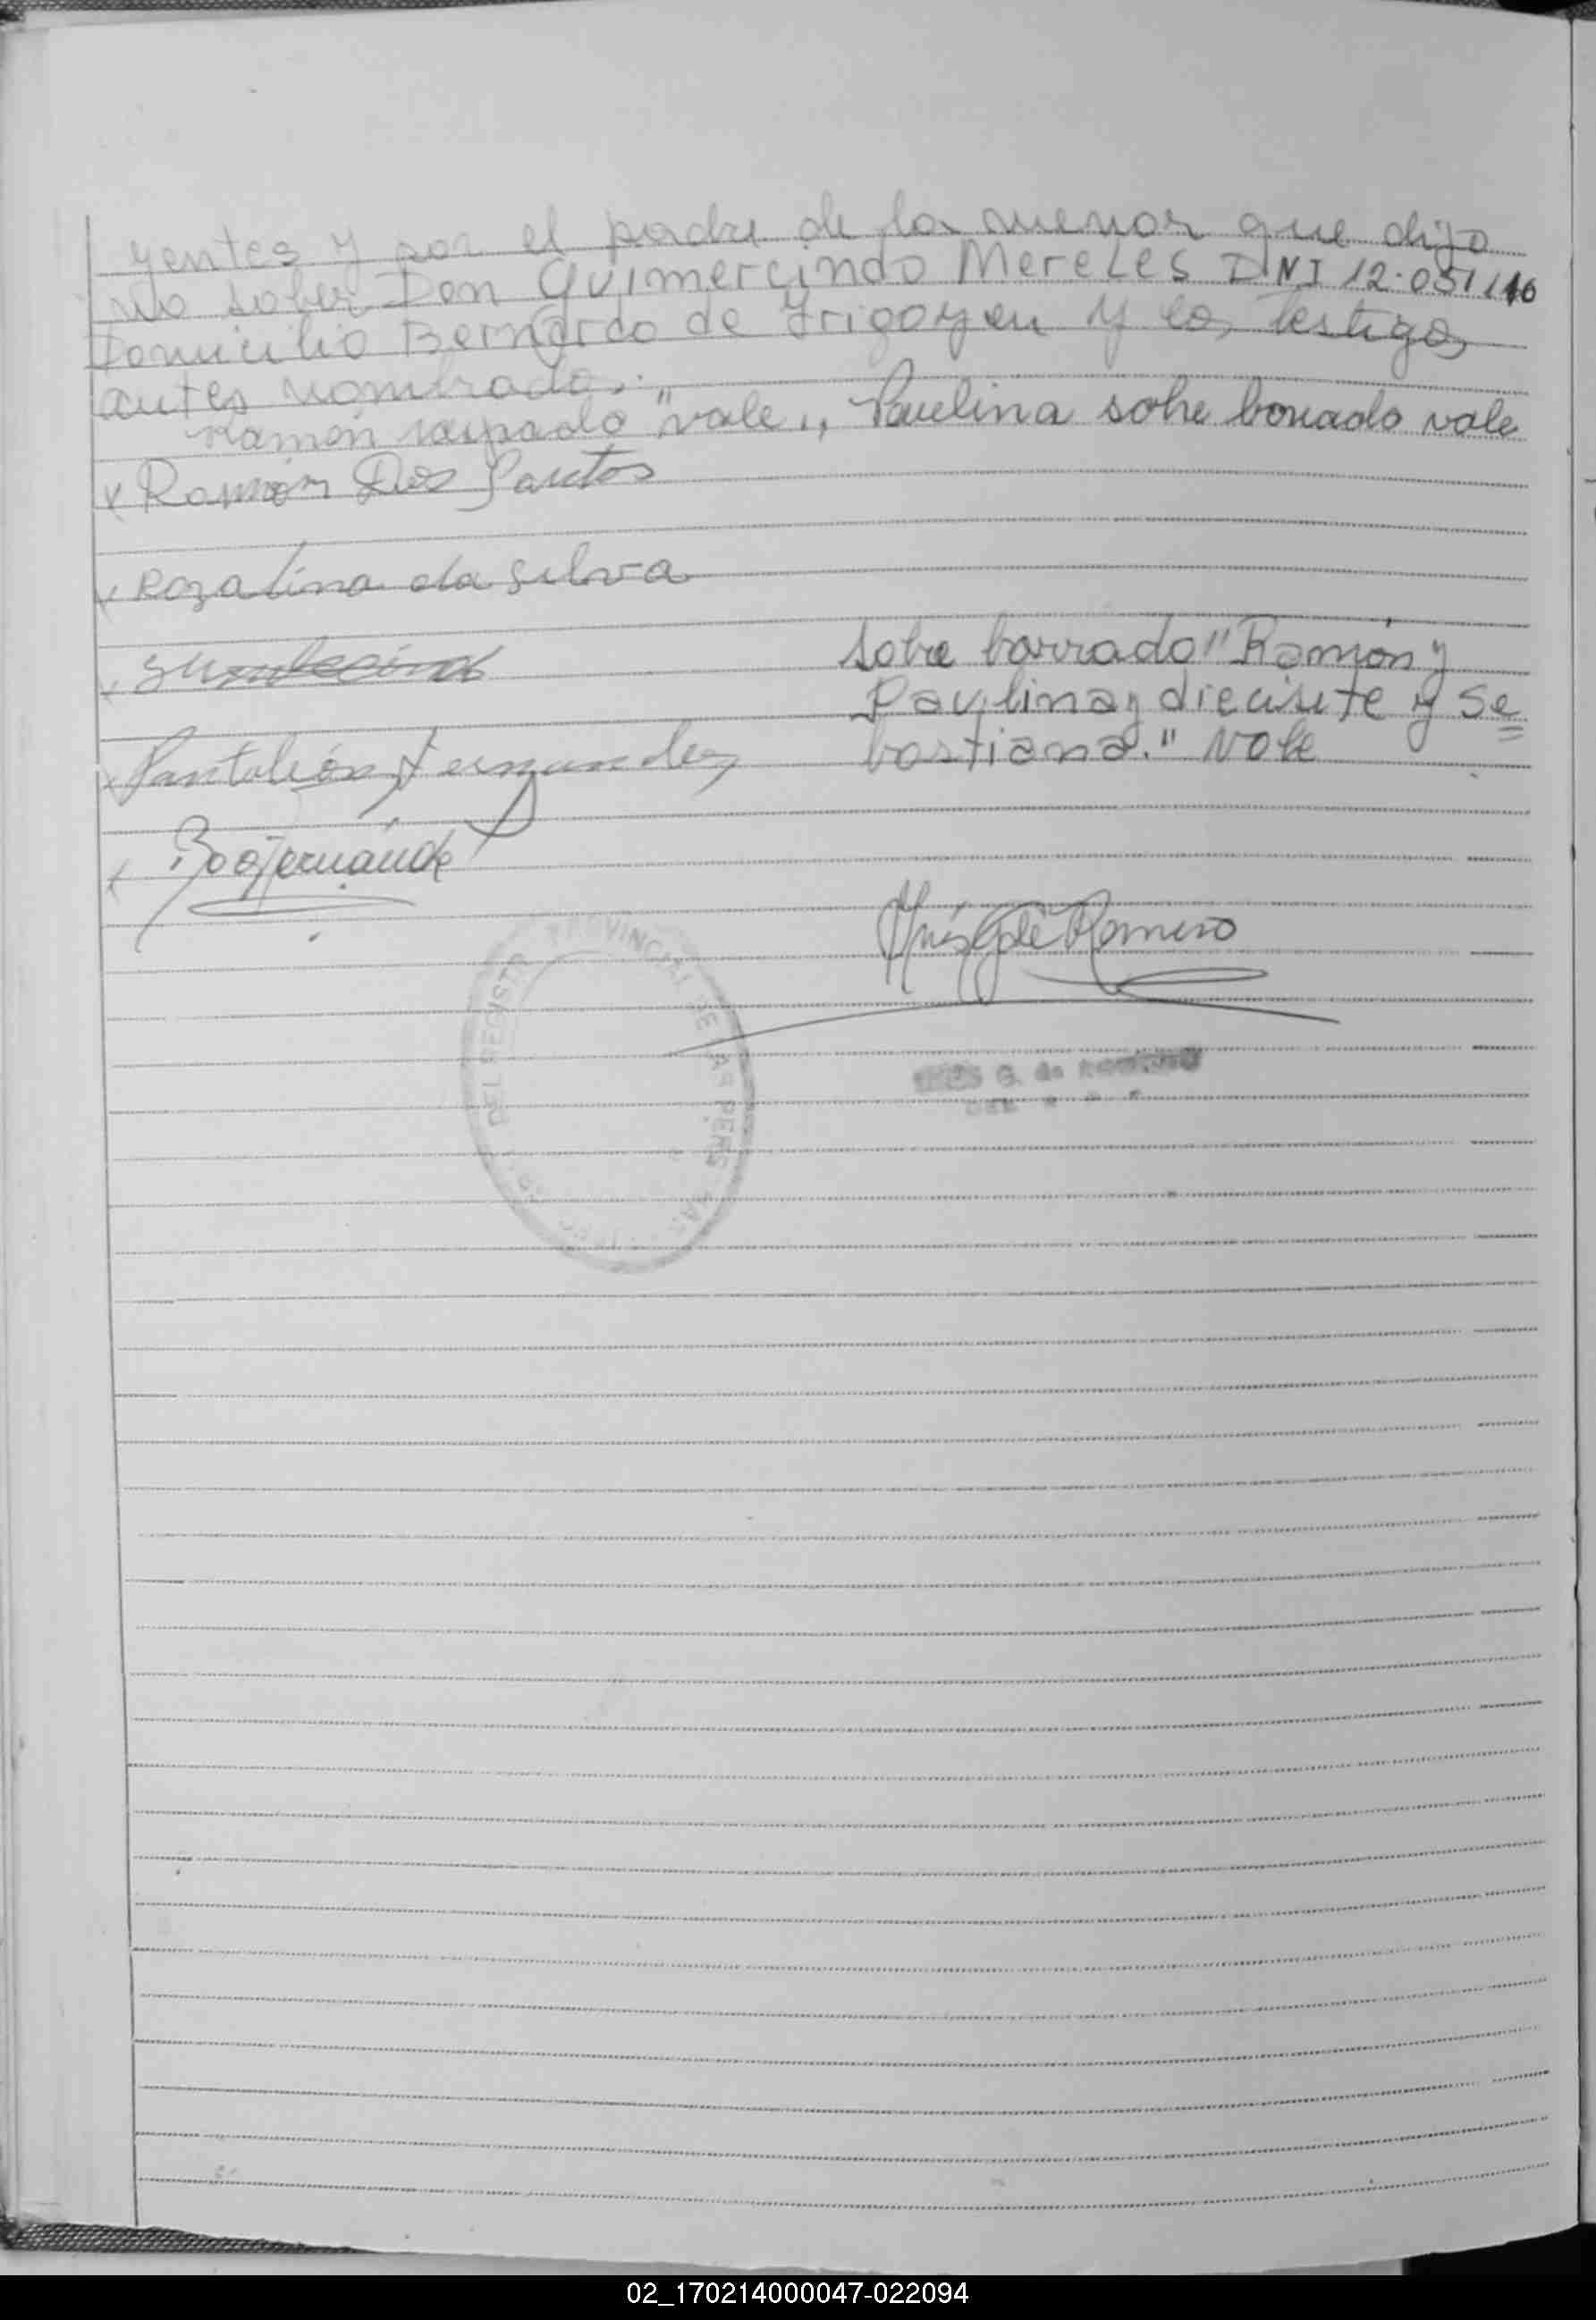 yentes y por el padre de la menor que dijo
no saber Don Guimercindo Mereles DNI 12.051.116
Domicilio Bernardo de Irigoyen y los testigos
antes nombrados.
Ramón raspado "vale", Paulina sobre borrado vale
x Ramón Dos Santos
x Rozalina da silva
Sobre borrado "Ramón y
Paulina y diecisiete y Se
bastiana." Vale
x Pantaleón Fernandez
x
Inés G de Romero
DEL REGISTRO PROVINCIAL DE LAS PERSONAS
INES G. de ROMERO
02_170214000047-022094